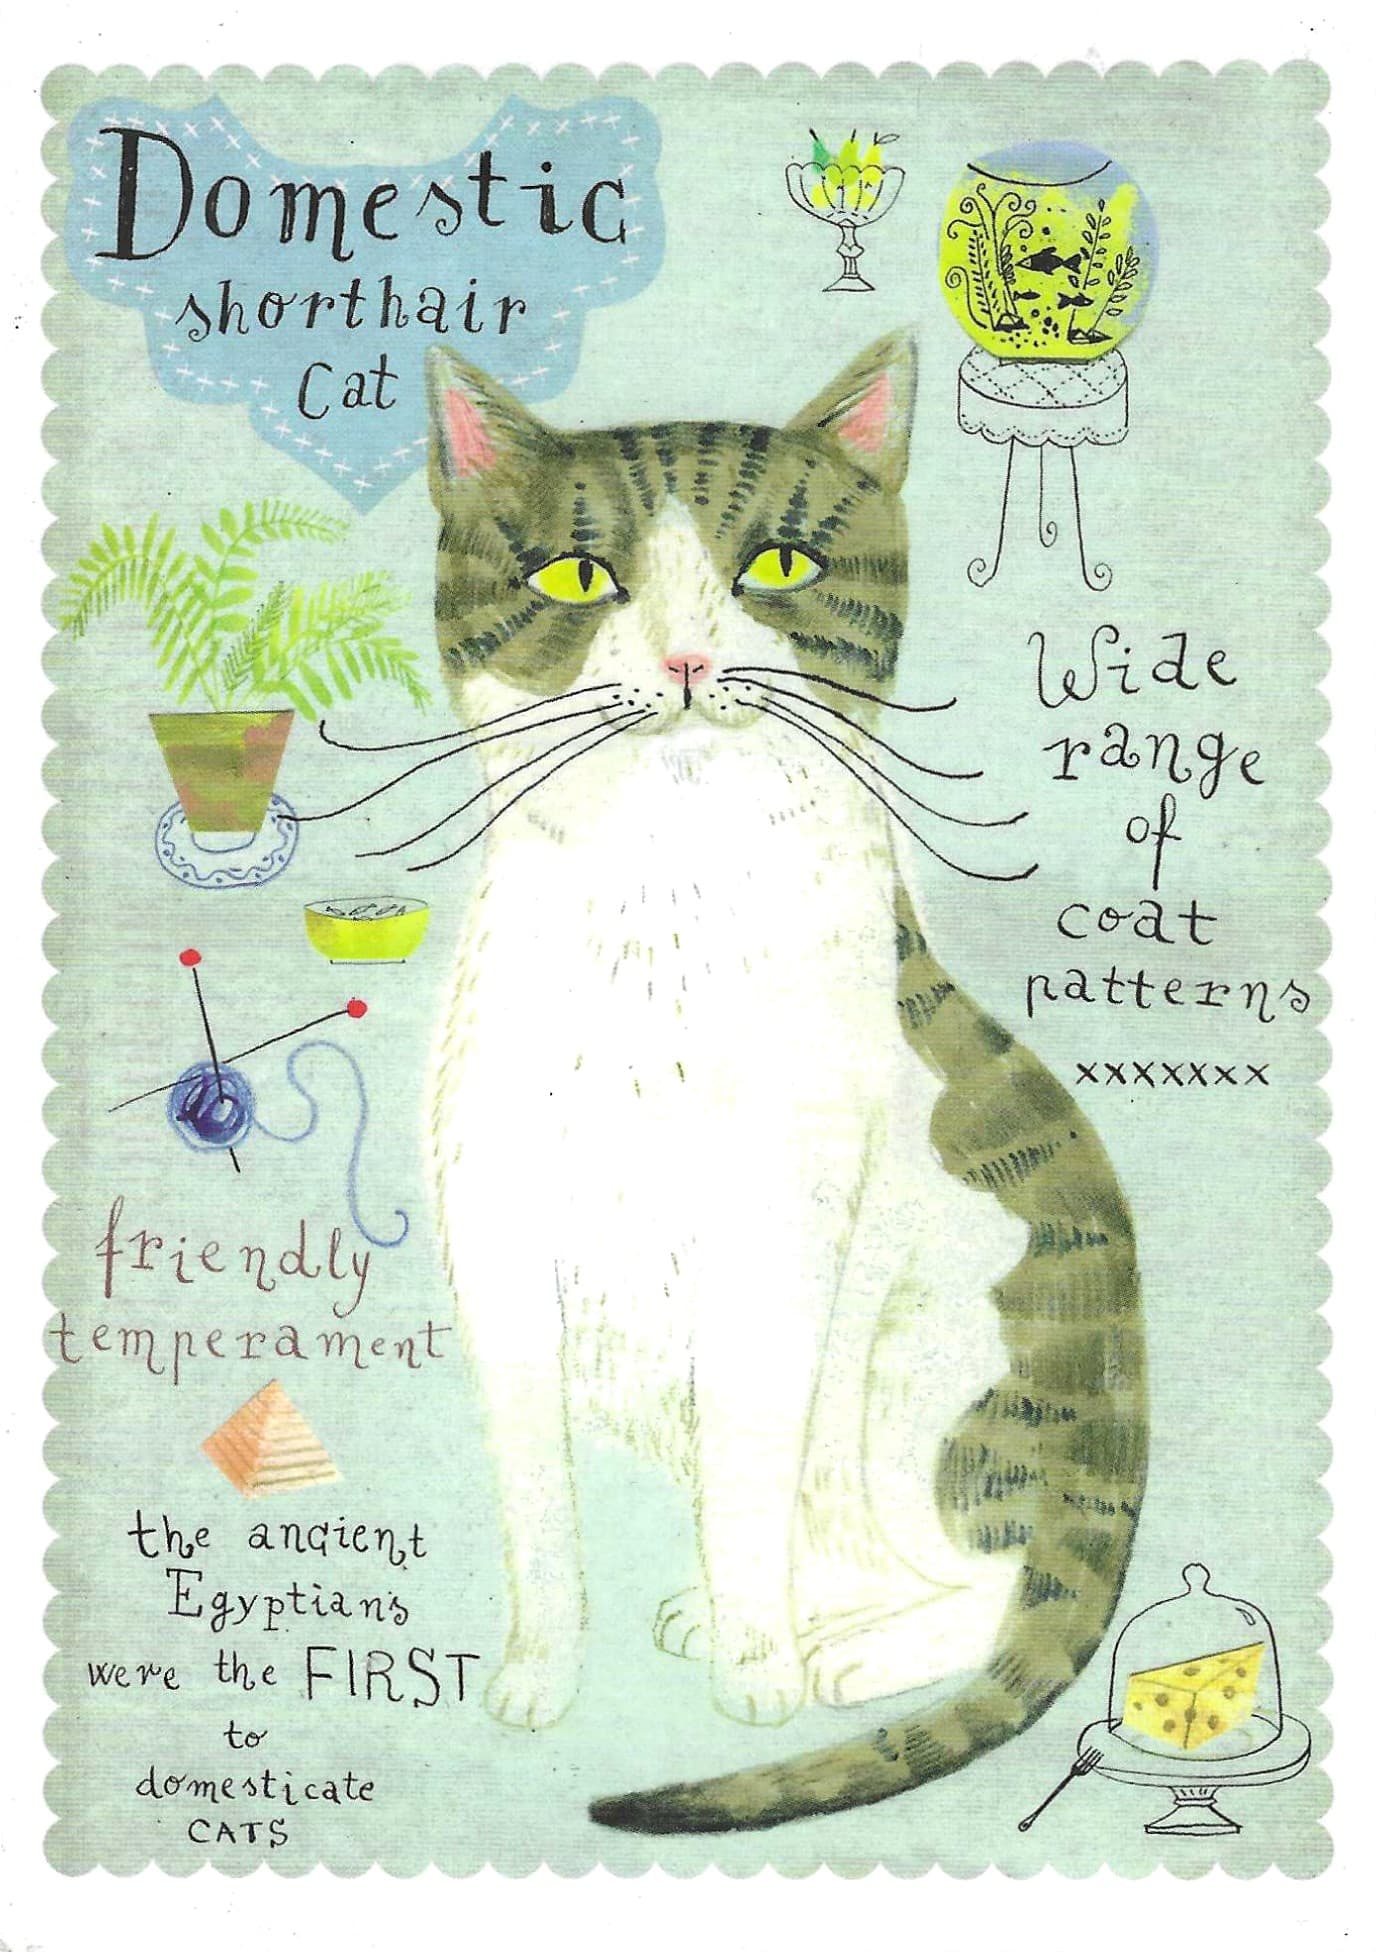 Domestic
shorthair
Cat
Wide
range
of
coat
patterns
xxxxxxx
friendly
temperament
the ancient
Egyptians
were the FIRST
to
domesticate
CATS